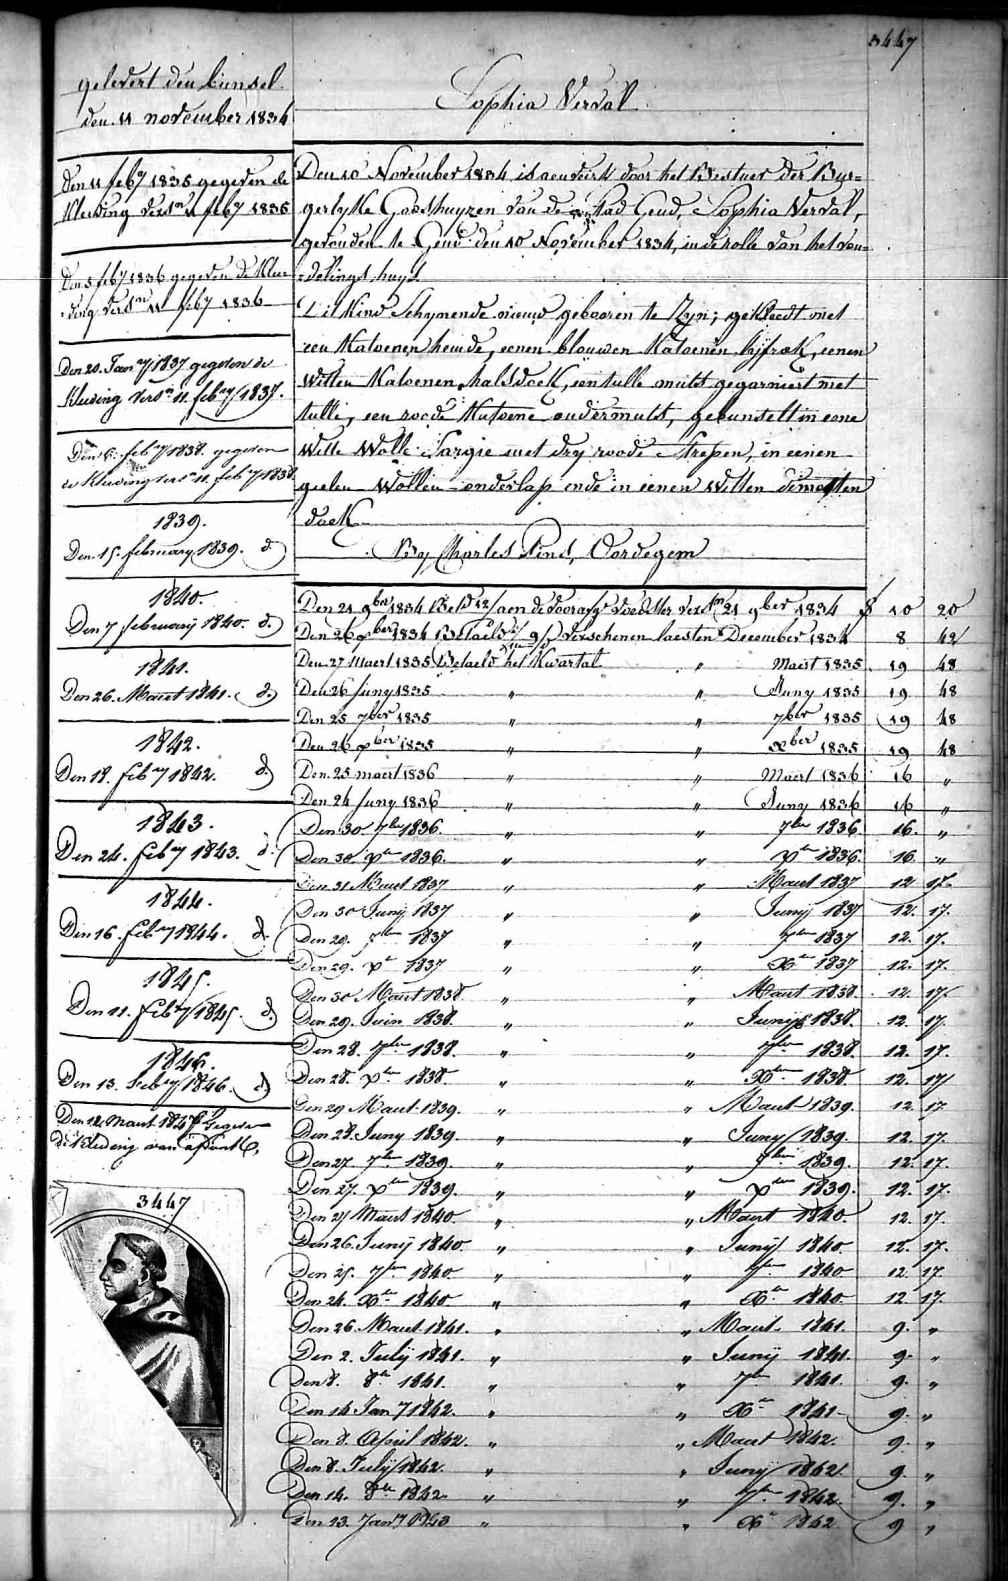 3447
gelevert den bunsel
den 11 november 1834
Den 11 feb^y 1835 gegeven de
Kleeding vers^n 11 feb^y 1835
Den 5 feb^y 1836 gegeven de Klee=
=ding vers^n 11 feb^y 1836
Den 20. Jan^ry 1837 gegeven de
Kleeding vers^n 11. feb^ry 1837.
Den 6. feb^ry 1838. gegeven
de Kleeding vers^n 11. feb^y 1838
1839.
Den 15. february 1839. d^o
1840.
Den 7 february 1840. d^o
1841.
Den 26. Maert 1841. d^o
1842.
Den 18. feb^ry 1842. d^o
1843.
Den 24. feb^ry 1843. d^o
1844.
Den 16. feb^ry 1844. d^o
1845.
Den 11. feb^ry 1845. d^o
1846.
Den 13. feb^ry 1846. d^o
Den 12. Maert 1847 Gegeven
de Kleeding van
3447
Sophia Verval
Den 10 November 1834 is aenveirt door het Bestuer der Bur=
gerlyke Godshuyzen van de Stad Gend, Sophia Verval,
gevonden te Gend den 10 November 1834, in de rolle van het von=
=delings huys.
Dit Kind Schynende nieuw gebooren te Zyn; gekleedt met
een Katoenen hemde, eenen blouwen Katoenen lyfrok, eenen
Witten Katoenen halsdoek, een tulle muts gegarniert met
tulle, een roode Katoene ondermuts, gebunselt in eene
Witte Wolle Sargie met dry roode Strepen, in eenen
geelen Wollen onderlap ende in eenen Witten dimetten
doek
By Charles Oordegem
Den 21 9^ber 1834 Bet^d aen de voorafg^e voedster vers^en 21 9^ber 1834 f 10 20
Den 26 x^ber 1834 Betaeld verschenen laesten December 1834 8 42
Den 27 Maert 1835 Betaeld het Kwartal " Maert 1835 19 48
Den 26 Juny 1835 " " Juny 1835 19 48
Den 25 7^ber 1835 " " 7^ber 1835 19 48
Den 26 x^ber 1835 " " x^ber 1835 19 48
Den 25 maert 1836 " " Maert 1836 16 "
Den 24 Juny 1836 " " Juny 1836 16 "
Den 30 7^ber 1836. " " 7^ber 1836 16. "
Den 30 x^ber 1836. " " x^ber 1836 16 "
Den 31 Maert 1837 " " Maert 1837 12 17.
Den 30 Junÿ 1837 " " Junÿ 1837 12. 17.
Den 29. 7^ber 1837 " " 7^ber 1837 12. 17.
Den 29. x^r 1837 " " x^ber 1837 12. 17.
Den 30 Maert 1838. " " Maert 1838. 12. 17.
Den 29. Juin 1838. " " Junÿ 1838. 12. 17.
Den 28. 7^ber 1838. " " 7^ber 1838. 12. 17.
Den 28. x^ber 1838. " " x^ber 1838 12. 17.
Den 29 Maert 1839. " " Maert 1839. 12. 17.
Den 28. Juny 1839. " " Juny 1839. 12. 17.
Den 27. 7^ber 1839. " " 7^ber 1839. 12. 17.
Den 27. x^ber 1839. " " x^ber 1839. 12. 17.
Den 27 Maert 1840. " " Maert 1840. 12. 17.
Den 26. Junÿ 1840. " " Junÿ 1840. 12. 17.
Den 25. 7^ber 1840. " " 7^ber 1840 12. 17.
Den 24. x^ber 1840. " " x^ber 1840. 12 17.
Den 26. Maert 1841. " " Maert 1841. 9. "
Den 2. Julÿ 1841. " " Junÿ 1841. 9. "
Den 8. 8^br 1841. " " 7^br 1841. 9. "
Den 14 Jan^y 1842. " " x^br 1841 9. "
Den 8. April 1842. " " Maert 1842. 9. "
Den 8. Julÿ 1842. " " Juny 1842 9. "
Den 14. 8^bre 1842. " " 7^bre 1842. 9. "
Den 13. Jan^ry 1843 " " x^r 1842 9 "